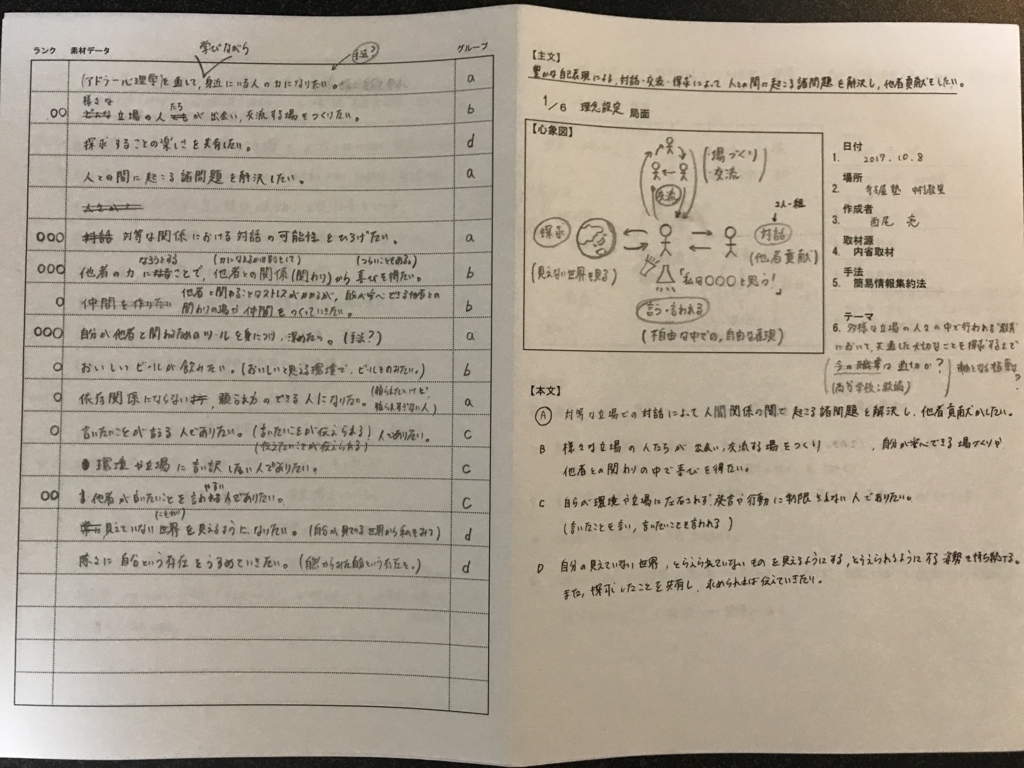 ランク 素材データ グループ
学びながら
手法?
(アドラー心理学)を通して、身近にいる人の力になりたい。 a
様々な たち
○○ 立場の人が出会い、交流する場をつくりたい。 b
探求することの楽しさを共有したい。 d
人との間に起こる諸問題を解決したい。 a
○○○ 対話 対等な関係における対話の可能性をひろげたい。 a
なろうとする (つらいこともある。)
○○○ 他者の力になることで、他者との関係(関わり)から喜びを得たい。 b
○ 仲間を作りたい 関わりの場や仲間をつくっていきたい。 b
○○○ 自分が他者と関わるためのツールを身につけ、深めたい。(手法?) a
○ おいしいビールが飲みたい。(おいしいと思える環境で、ビールをのみたい。) b
○ 依存関係にならない 頼る力のできる人になりたい。 a
○ 言いたいことが言える人でありたい。(言いたいことが伝えられる)人でありたい。 c
(伝えたいことが伝えられる)
環境や立場に言い訳しない人でありたい。 c
やすい
○○ 他者が言いたいことを言われる人でありたい。 c
見えていない世界を見えるようになりたい。(自分が見てる世界から私をみて) d
除々に自分という存在をうすめていきたい。 d
【主文】
豊かな自己表現による、対話・交流・探求によって人との間に起こる諸問題を解決し、他者貢献をしたい。
1/6 理先設定 局面
【心象図】
場づくり
交流
交流
探求
(見えない世界を見る)
2人一組
対話
(他者貢献)
「私は○○○と思う!」
言う・言われる
(不自由な中での、自由な表現)
日付
1. 2017.10.8
場所
2. 寺子屋塾 中村教室
作成者
3. 西尾 亮
取材源
4. 内省取材
手法
5. 簡易情報集約法
テーマ
6. 多様な立場の人々の中で行われる"教育"
において、共通した大切なことを探求する上で
今の職業は適切か?
【本文】
A 対等な立場での対話によって人間関係の間で起こる諸問題を解決し、他者貢献がしたい。
B 様々な立場の人たちが出会い、交流する場をつくり 、自分が学べできる場づくりや
他者との関わりの中で喜びを得たい。
C 自らが環境や立場に左右されず、発言や行動に制限を与えない人でありたい。
(言いたことを言い、言いたいことを言われる)
D 自分の見えていない世界、とらえられていないものを見えるようにする、とらえられるようにする姿勢を持ち続ける。
また、探求したことを共有し、求められれば伝えていきたい。